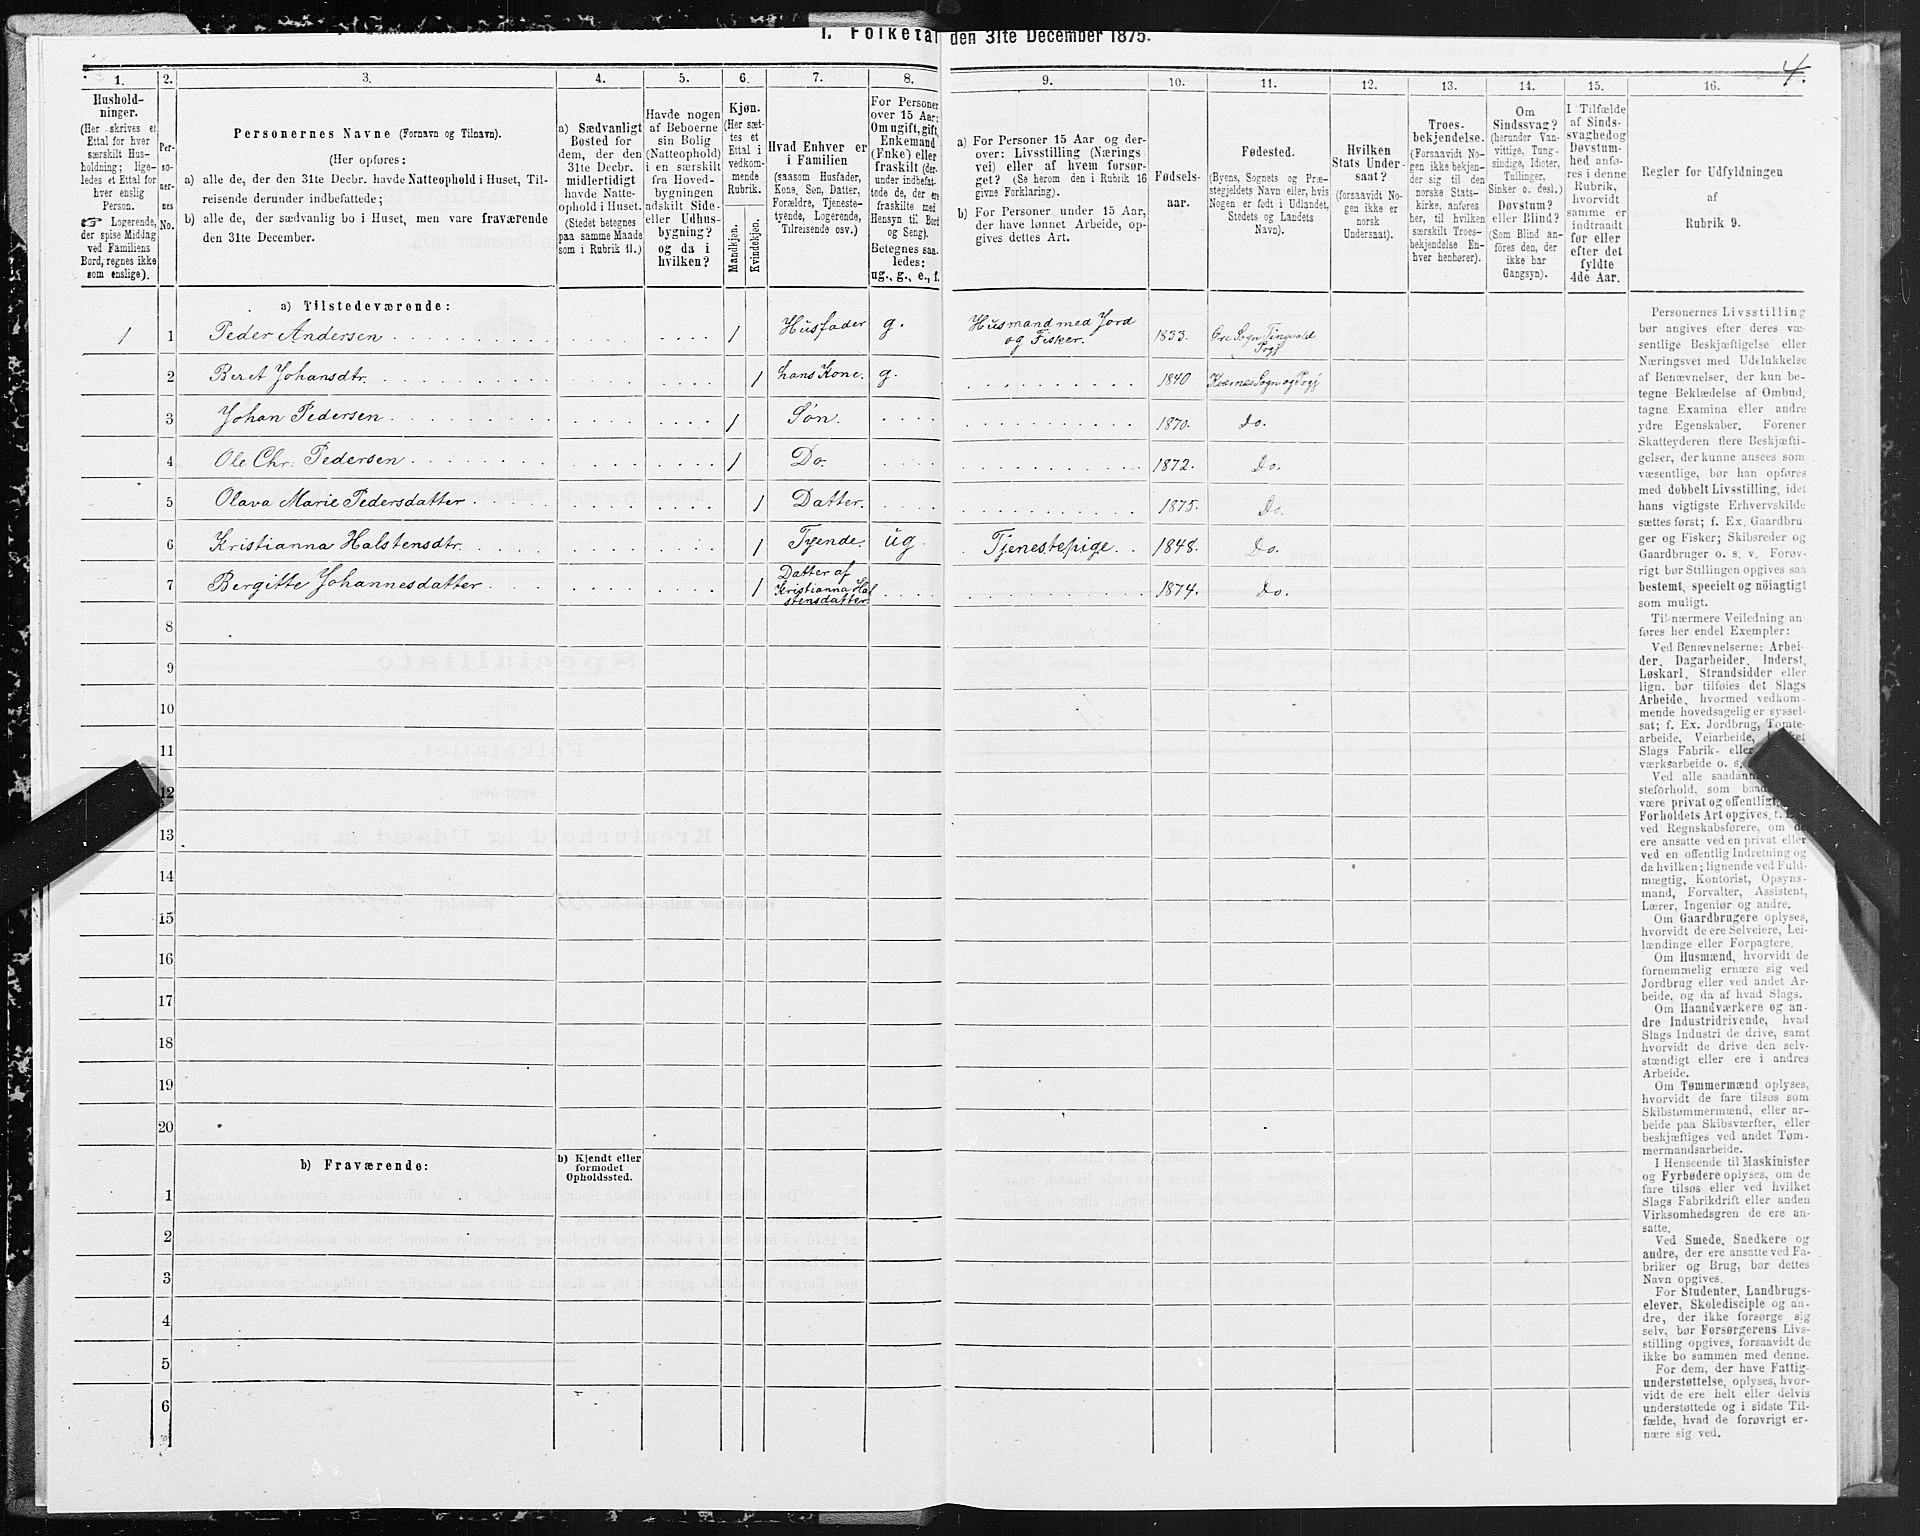 1. Folketal den 31te December 1875.
4.
1.
2.
3.
4.
5.
6.
7.
8.
9.
10.
11.
12.
13.
14.
15.
16.
Hushold-
ninger.
(Her skrives et
Ettal for hver
særskilt Hus-
holdning; lige-
ledes et Ettal for
hver enslig
Person.
☞ Logerende,
der spise Middag
ved Familiens
Bord, regnes ikke
som enslige).
Per-
so-
ner-
nes
No.
Personernes Navne (Fornavn og Tilnavn).
(Her opføres:
a) alle de, der den 31te Decbr. havde Natteophold i Huset, Til-
reisende derunder indbefattede;
b) alle de, der sædvanlig bo i Huset, men vare fraværende
den 31te December.
a) Sædvanligt
Bosted for
dem, der den
31te Decbr.
midlertidigt
havde Natte-
ophold i Huset.
(Stedet betegnes
paa samme Maade
som i Rubrik 11.)
Havde nogen
af Beboerne
sin Bolig
(Natteophold)
i en særskilt
fra Hoved-
bygningen
adskilt Side-
eller Udhus-
bygning?
og da i
hvilken?
Kjøn.
(Her sæt-
tes et
Ettal i
vedkom-
mende
Rubrik.
Mandkjøn.
Kvindekjøn.
Hvad Enhver er
i Familien
(saasom Husfader,
Kone, Søn, Datter,
Forældre, Tjeneste-
tyende, Logerende,
Tilreisende osv.)
For Personer
over 15 Aar:
Om ugift, gift,
Enkemand
(Enke) eller
fraskilt (der-
under indbefat-
tede de, der ere
fraskilte med
Hensyn til Bord
og Seng).
Betegnes saa-
ledes:
ug., g., e., f.
a) For Personer 15 Aar og der-
over: Livsstilling (Nærings-
vei) eller af hvem forsør-
get? (Se herom den i Rubrik 16
givne Forklaring).
b) For Personer under 15 Aar,
der have lønnet Arbeide, op-
gives dettes Art.
Fødsels-
aar.
Fødested.
(Byens, Sognets og Præ-
stegjeldets Navn eller, hvis
Nogen er født i Udlandet,
Stedets og Landets
Navn).
Hvilken
Stats Under-
saat?
(forsaavidt No-
gen ikke er
norsk
Undersaat).
Troes-
bekjendelse.
(Forsaavidt No-
gen ikke bekjen-
der sig til den
norske Stats-
kirke, anføres
her, til hvilken
særskilt Troes-
bekjendelse En-
hver henhører).
Om
Sindssvag?
(herunder Van-
vittige, Tung-
sindige, Idioter,
Tullinger,
Sinker o. desl.)
Døvstum?
eller Blind?
(Som Blind an-
føres den, der
ikke har
Gangsyn).
I Tilfælde
af Sinds-
svaghed og
Døvstum-
hed anfø-
res i denne
Rubrik,
hvorvidt
samme er
indtraadt
før eller
efter det
fyldte
4de Aar.
Regler for Udfyldningen
af
Rubrik 9.
a) Tilstedeværende:
1 1 Peder Andersen 1 Husfader g. Husmand med Jord og Fisker. 1833. Øre Sogn Tingvold Prgj
2 Beret Johansdtr. 1 hans Kone. g. 1840 Kvernes Sogn og Prgj
3 Johan Pedersen 1 Søn. 1870. Do.
4 Ole Chr: Pedersen 1 Do. 1872. Do.
5 Olava Marie Pedersdatter 1 Datter. 1875. Do.
6 Kristianna Halstensdtr. 1 Tyende. ug. Tjenestepige. 1848. Do.
7 Bergitte Johannesdatter 1 Datter af Kristianna Halstensdatter. 1874. Do.
8
9
10
11
12
13
14
15
16
17
18
19
20
b) Fraværende:
b) Kjendt eller
formodet
Opholdssted.
1
2
3
4
5
6
Personernes Livsstilling
bør angives efter deres væ-
sentlige Beskjæftigelse eller
Næringsvei med Udelukkelse
af Benævnelser, der kun be-
tegne Beklædelse af Ombud,
tagne Examina eller andre
ydre Egenskaber. Forener
Skatteyderen flere Beskjæfti-
gelser, der kunne ansees som
væsentlige, bør han opføres
med dobbelt Livsstilling, idet
hans vigtigste Erhvervskilde
sættes først; f. Ex. Gaardbru-
ger og Fisker; Skibsreder og
Gaardbruger o. s. v. Forøv-
rigt bør Stillingen opgives saa
bestemt, specielt og nöiagtigt
som muligt.
Til nærmere Veiledning an-
føres her endel Exempler:
Ved Benævnelserne: Arbei-
der, Dagarbeider, Inderst,
Løskarl, Strandsidder eller
lign. bør tilføies det Slags
Arbeide, hvormed vedkom-
mende hovedsagelig er syssel-
sat; f. Ex. Jordbrug, Tomte-
arbeide, Veiarbeide,
Slags Fabrik- eller
værksarbeide o. s.
Ved alle saadan
steforhold, som baa
være privat og offentligt,
Forholdets Art opgives, t.
ved Regnskabsførere, om de
ere ansatte ved en privat eller
ved en offentlig Indretning og
da hvilken; lignende ved Fuld-
mægtig, Kontorist, Opsyns-
mand, Forvalter, Assistent,
Lærer, Ingeniør og andre.
Om Gaardbrugere oplyses,
hvorvidt de ere Selveiere, Lei-
lændinge eller Forpagtere.
Om Husmænd, hvorvidt de
fornemmelig ernære sig ved
Jordbrug eller ved andet Ar-
beide, og da af hvad Slags.
Om Haandværkere og an-
dre Industridrivende, hvad
Slags Industri de drive, samt
hvorvidt de drive den selv-
stændigt eller ere i andres
Arbeide.
Om Tømmermænd oplyses,
hvorvidt de fare tilsøs som
Skibstømmermænd, eller ar-
beide paa Skibsværfter, eller
beskjæftiges ved andet Tøm-
mermandsarbeide.
I Henseende til Maskinister
og Fyrbødere oplyses, om de
fare tilsøs eller ved hvilket
Slags Fabrikdrift eller anden
Virksomhedsgren de ere an-
satte.
Ved Smede, Snedkere og
andre, der ere ansatte ved Fa-
briker og Brug, bør dettes
Navn opgives.
For Studenter, Landbrugs-
elever, Skoledisciple og an-
dre, der ikke forsørge sig
selv, bør Forsørgerens Livs-
stilling opgives, forsaavidt de
ikke bo sammen med denne.
For dem, der have Fattig-
understøttelse, oplyses, hvor-
vidt de ere helt eller delvis
understøttede og i sidste Til-
fælde, hvad de forøvrigt er-
nære sig ved.